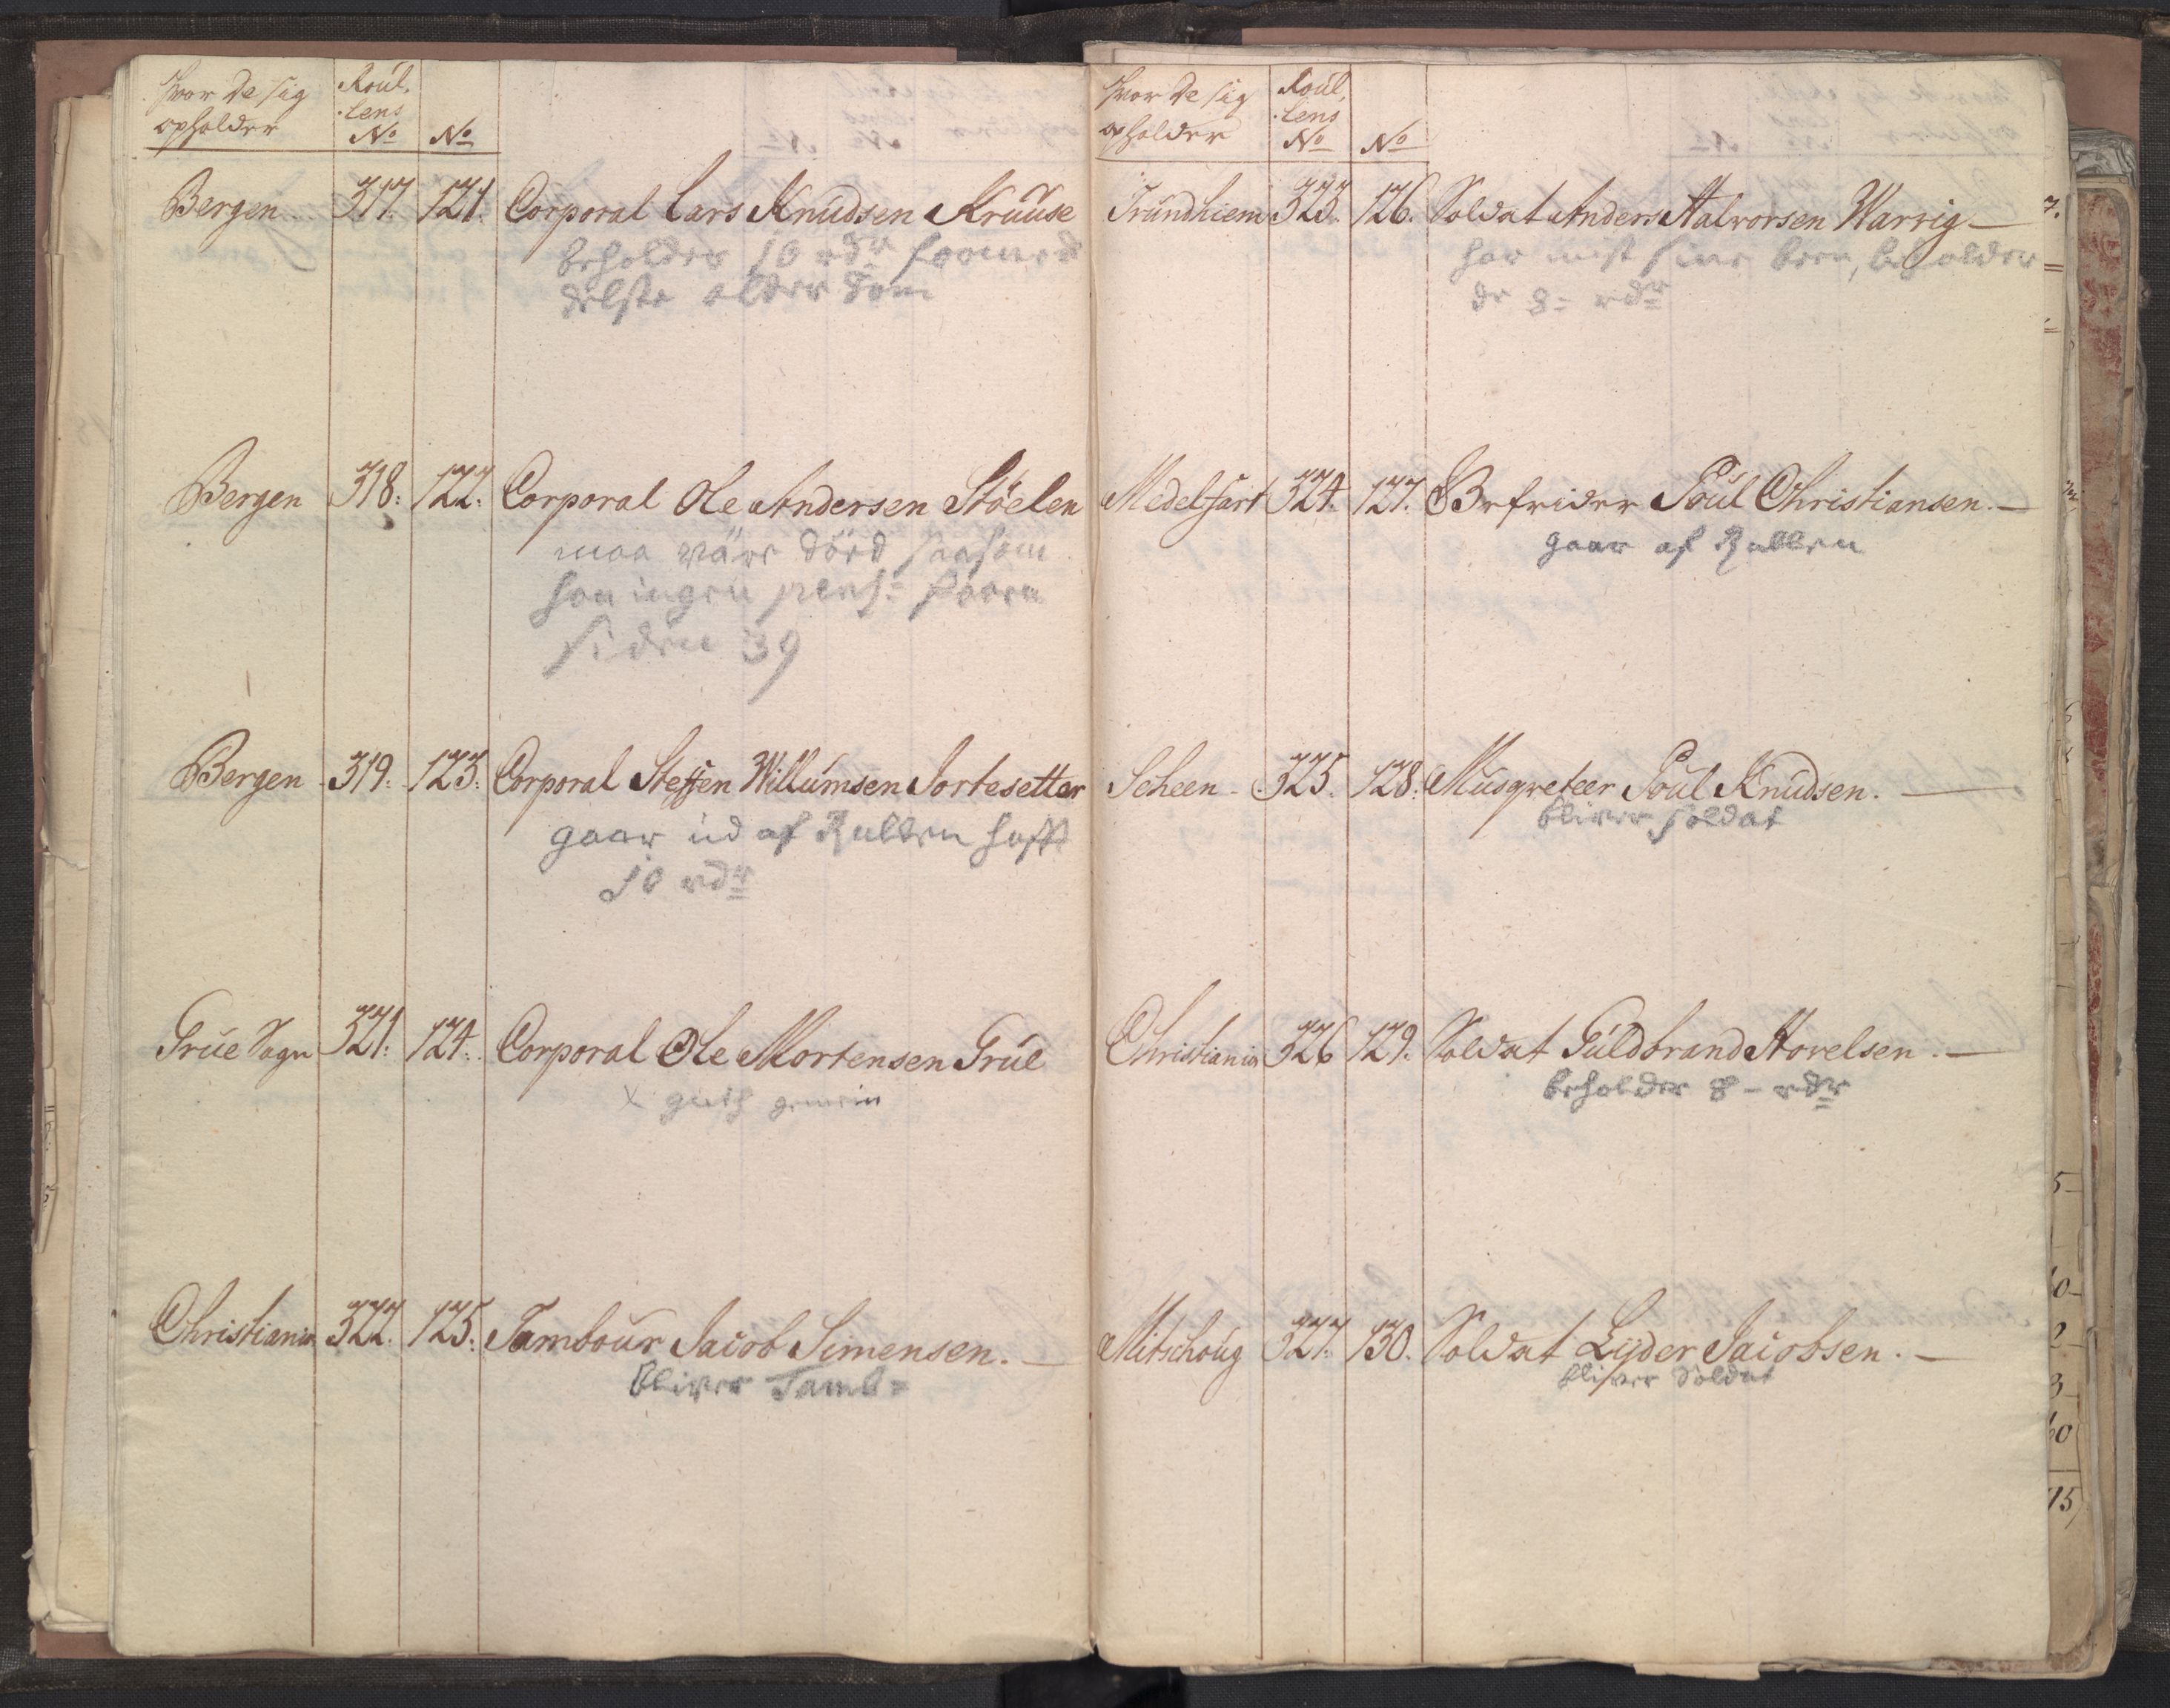 hvor de sig
opholder
Roul,
lens
No No
Bergen 317. 121. Corporal Lars Knudsen Kruuse
beholder 10 rdr
alderdom
Bergen 318: 122. Corporal Ole Andersen Stöelen
maa være död saasom
han ingen pens:
siden 39
Bergen 319. 123: Corporal Steffen Willumsen Jortesetter
gaar ud af Rullen hafft
10 rdr
Grue Sogn 321: 124: Corporal Ole Mortensen Grue
x
Christiania 322. 125: Tambour Jacob Simensen. —
bliver Tamb=
hvor de sig
opholder
Roul,
lens
No No
Trundhiem 323. 126. Soldat Anders Halvorsen Warrig —
har mist sine been, beholder
de 8= rdr
Medelfart 324. 127. Befrider Poul Christiansen. —
gaar af Rullen
Scheen 325. 128: Musqveteer Poul Knudsen. —
bliver soldat
Christiania 326 129. Soldat Guldbrand Hovelsen. —
beholder 8 — rdr
Mitschoug 327. 130. Soldat Lyder Jacobsen. —
bliver Soldat